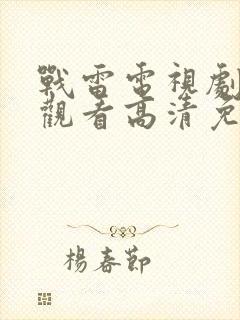 戰雷電視劇
觀看高清免
楊春節